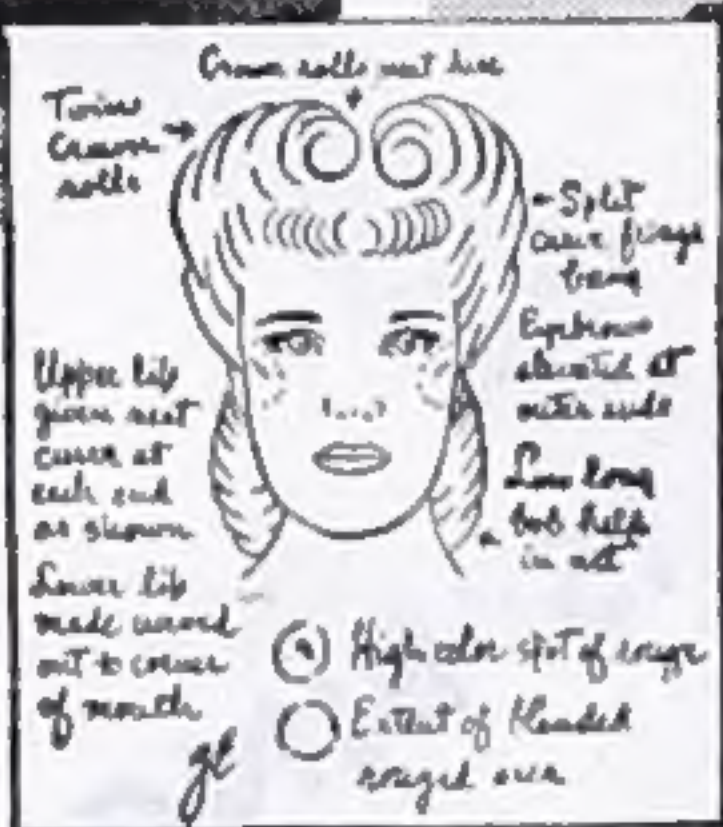 Crown rolls meet here
Twin
Crown
rolls
Split
curve fringe
bang
Eyebrows
elevated at
outer ends
Upper lip
given neat
curve at
each end
as shown
Low long
bob held
in net
Lower lip
made curved
out to corner
of mouth
High color spot of rouge
Extent of blended
rouged area